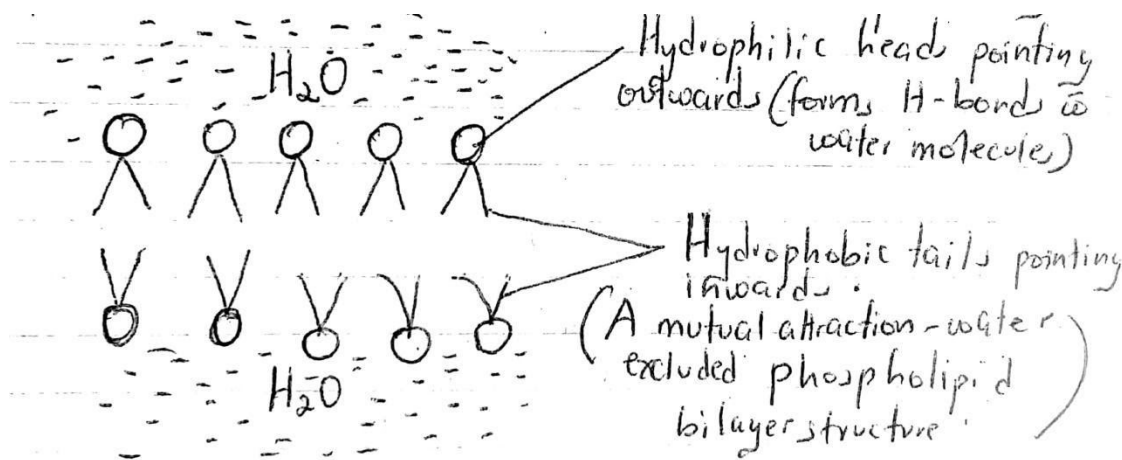 H₂O
Hydrophilic heads pointing
outwards (forms H-bonds w̄
water molecules)
Hydrophobic tails pointing
inwards.
(A mutual attraction - water
excluded phospholipid
bilayer structure.)
H₂O